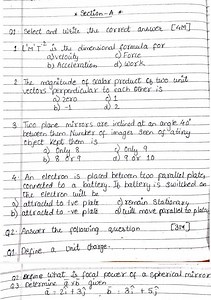 * Section - A *
Q1 Select and Write the correct answer [4M]
1 L¹M¹T⁻² is the dimensional formula for
a) velocity c) Force
b) Acceleration d) Work
2 The magnitude of scalar product of two unit
vectors perpendicular to each other is
a) zero c) 1
b) -1 d) 2
3 Two plane mirrors are inclined at an angle 40°
between them. Number of images seen of a tiny
object kept them is
a) Only 8 c) Only 9
b) 8 or 9 d) 9 or 10
4 An electron is placed between two parallel plates
connected to a battery. If battery is switched on
the electron will be
a) attracted to +ve plate c) remain stationary
b) attracted to -ve plate d) will move parallel to plate
Q2 Answer the following question
Q1 Define a unit charge.
Q2 Define What is focal power of a spherical mirror
Q3 Determine a × b given
a = 2î + 3ĵ b = 3î + 5ĵ